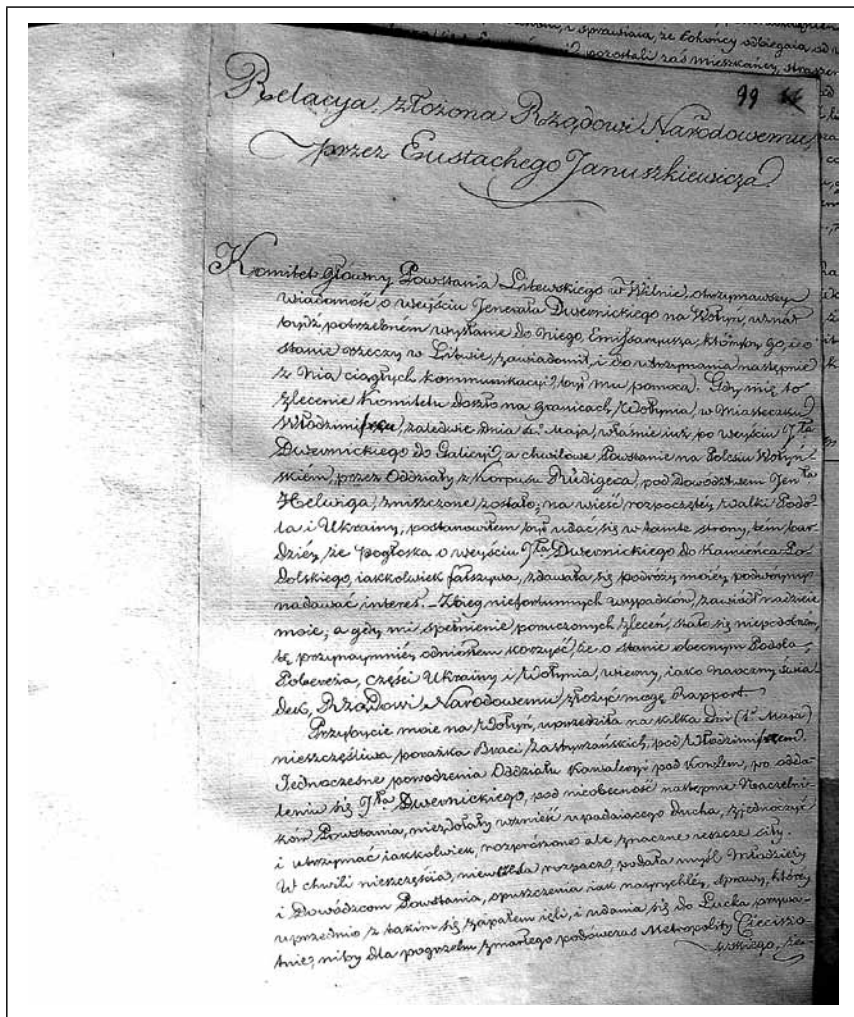 sprawiaią, że Łohońcy odbiegaią od
pozostali zaś mieszkańcy, straszen
99
Relacya złożona Rządowi Narodowemu
przez Eustachego Januszkiewicza
Komitet główny Powstania Litewskiego w Wilnie, otrzymawszy
wiadomość o weyściu Jenerała Dwernickiego na Wołyń, uznał
bydź potrzebnem wysłanie do niego, Emissaryusza, któryby go, i o
stanie rzeczy w Litwie, zawiadomił, i do utrzymania następnie
z Nią ciągłych kommunikacyi, był mu pomocą. Gdy mię to
zlecenie Komitetu doszło na granicach Wołynia, w Miasteczku
zaledwie dnia 4º Maja, właśnie iuż po weyściu Jła
Dwernickiego do Galicyi, a chwilowe Powstanie na Polesiu Wołyń-
skiém, przez Oddziały z Korpusu Rüdigera, pod Dowództwem Jenła
zniszczone zostało; na wieść rozpoczętéy walki Podo-
la i Ukrainy, postanowiłem był udać się w tamte strony, tém bar-
dziéy, że pogłoska o weyściu Jła Dwernickiego do Kamieńca Po-
dolskiego, iakkolwiek fałszywa, zdawała się podróży moiéy podwóyny
nadawać interes. – Zbieg niefortunnych wypadków, zawiódł nadzieie
moie; a gdy mi spełnienie poruczonych zleceń, stało się niepodobném,
tę przynaymniéy odniosłem korzyść, że o stanie obecnym Podola,
Pobereża, części Ukrainy i Wołynia, wierny, iako naoczny świa-
dek, Rządowi Narodowemu złożyć mogę Rapport.
Przybycie moie na Wołyń, uprzedziła na kilka dni (1º Maja)
nieszczęśliwa porażka Braci pod
Jednoczesne powodzenia Oddziału Kawaleryi pod Kowlem, po odda-
leniu się Jła Dwernickiego, pod nieobecność następnie Naczelni-
ków Powstania, niezdołały wznieść upadaiącego ducha, zjednoczyć
i utrzymać iakkolwiek, rozprószone ale znaczne ieszcze siły.
W chwili nieszczęścia, rozpacz, podała myśl Młodzieży
i Dowódzcom Powstania, opuszczenia iak nayprychléy, sprawy, któréy
uprzednio z takim się zapałem ięli, i udania się do Łucka prywa-
tnie, niby dla pogrzebu zmarłego podówczas Metropolity Cieciszo-
wskiego,